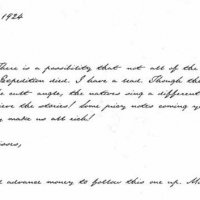 1924
There is a possibility that not all of the
Expedition died. I have a lead. Though the
cult angle, the natives sing a different
the stories! Some juicy notes coming yo
make us all rich!
advance money to follow this one up.